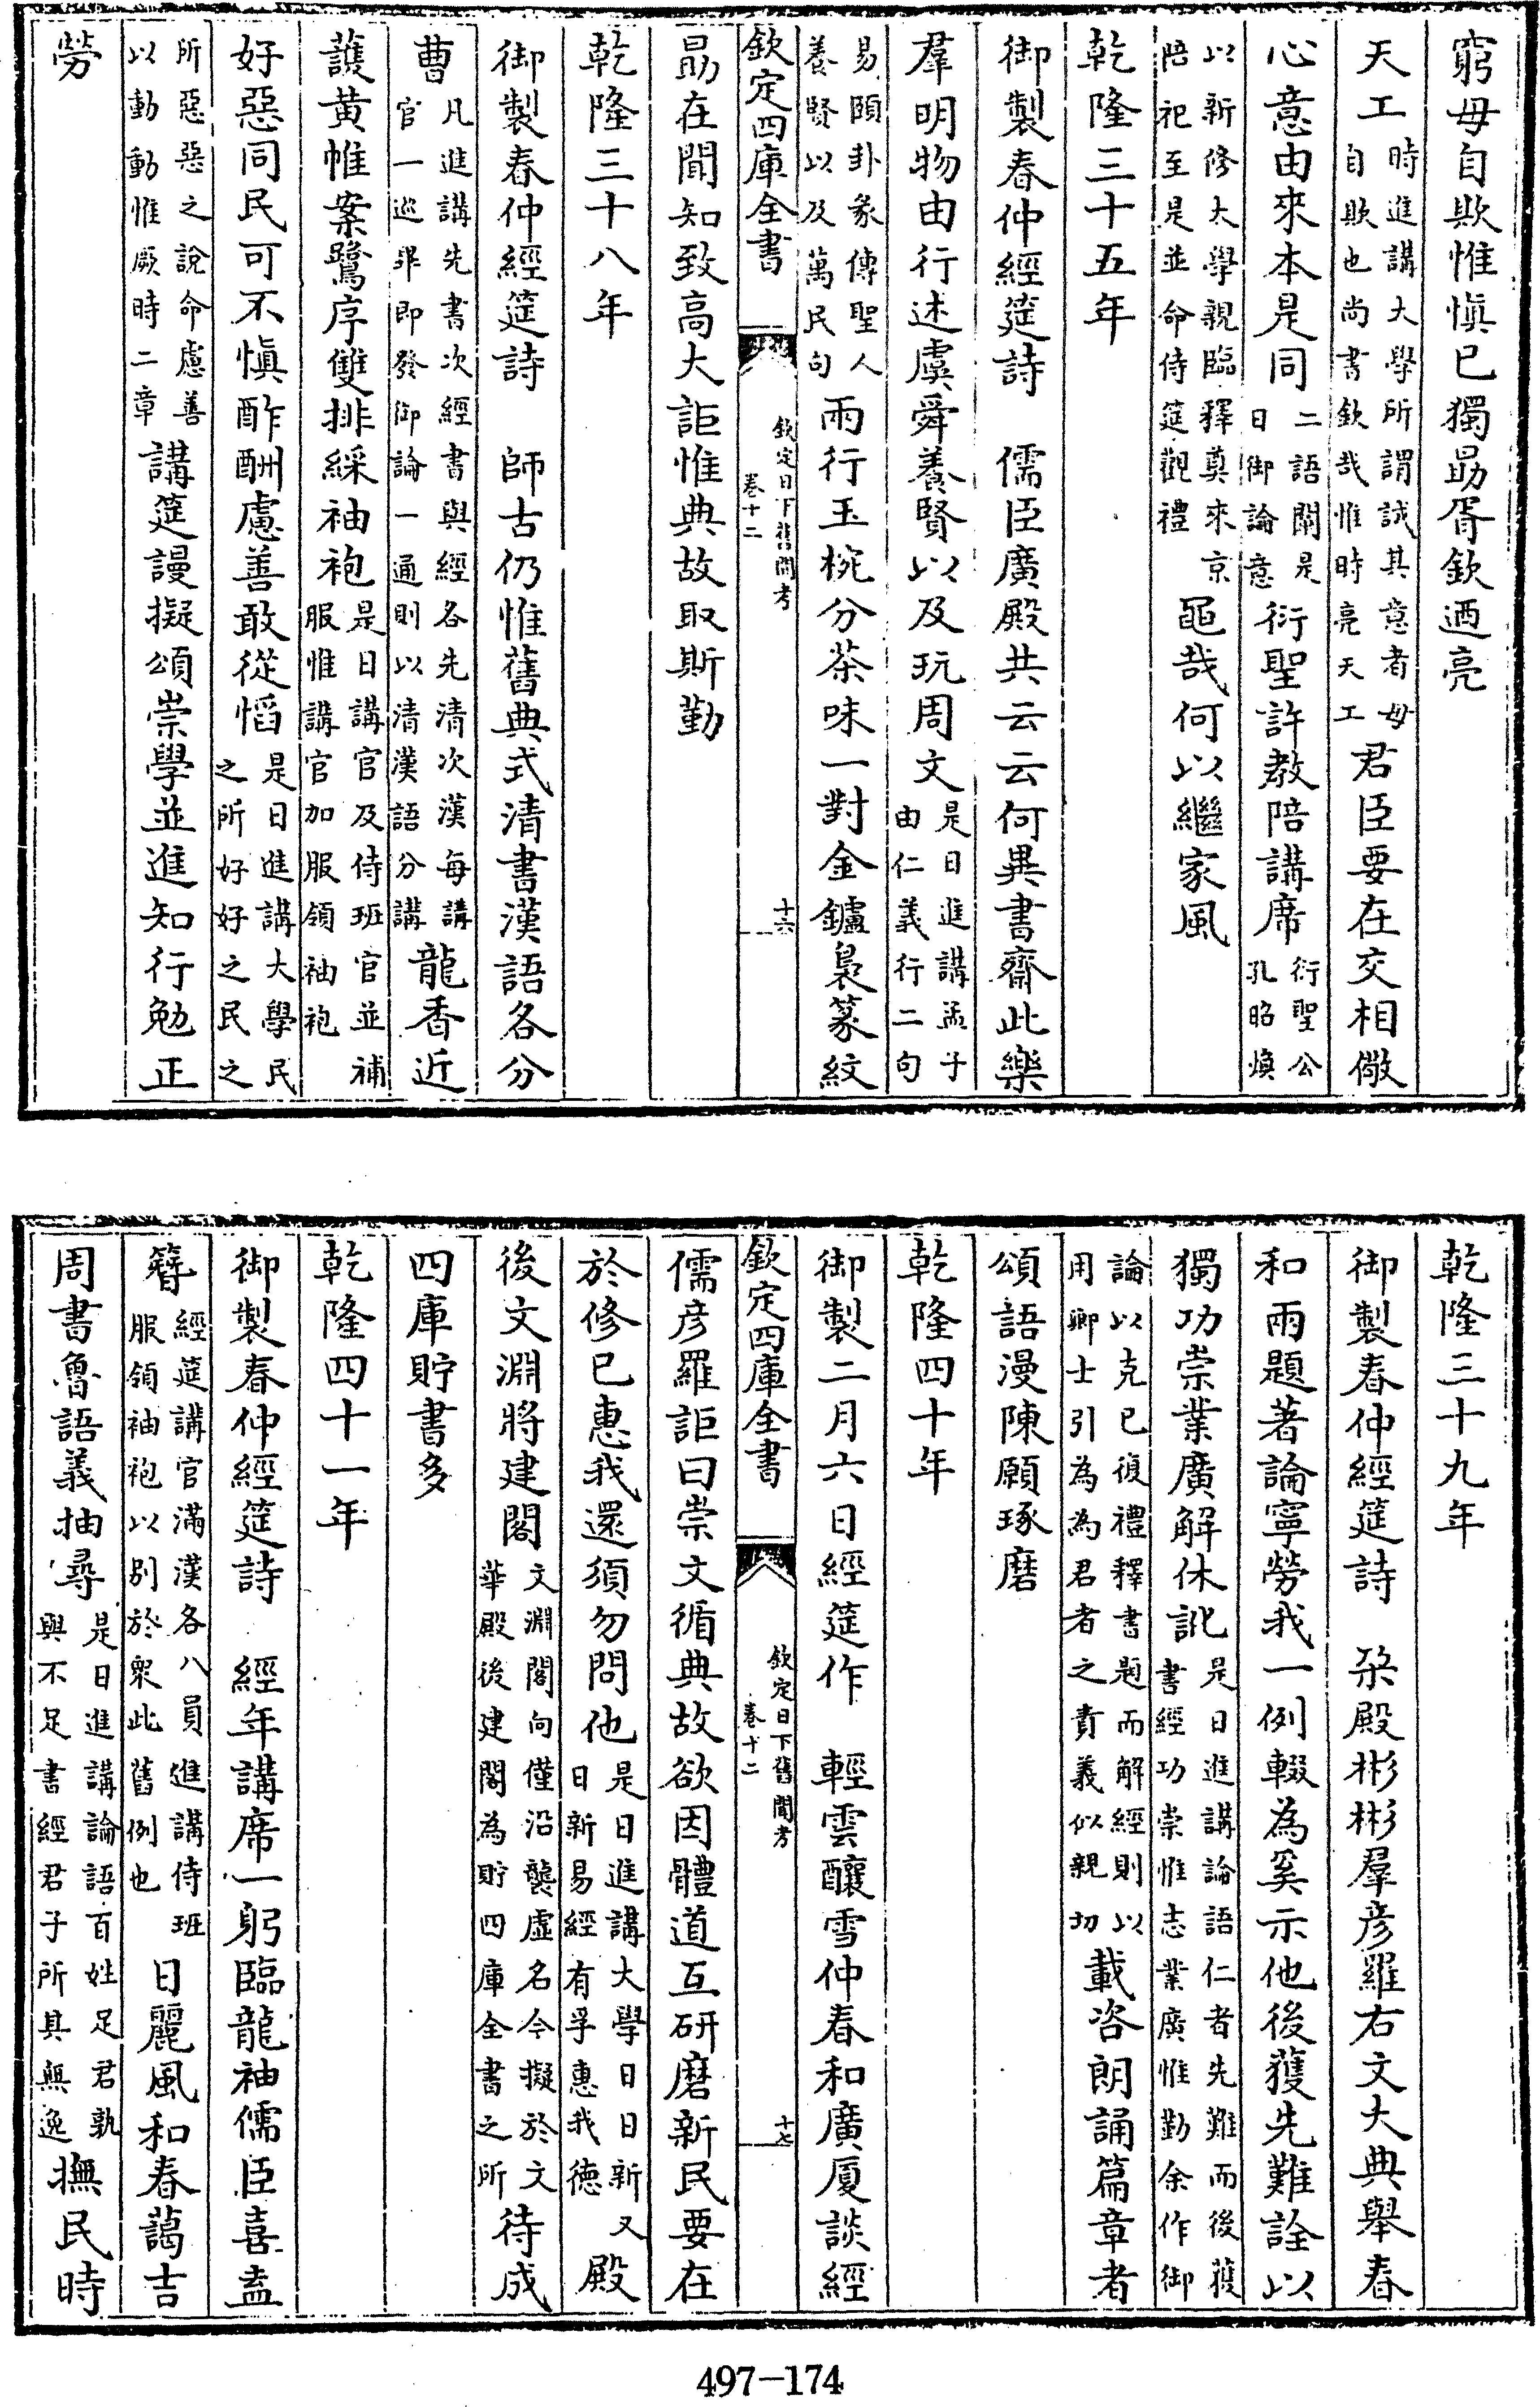 窮毋自欺惟愼已獨勗胥欽迺亮
天工時進講大學所謂誠其意者毋自欺也尚書欽哉惟時亮天工君臣要在交相儆
心意由來本是同二語闗是日御論意衍聖許教陪講席衍聖公孔昭煥
以新修大學親臨釋奠來京陪祀至是並命侍筵觀禮黽哉何以繼家風
乾隆三十五年
御製春仲經筵詩　儒臣廣殿共云云何異書齋此樂
羣明物由行述虞舜養賢以及玩周文是日進講孟子由仁義行二句
易頤卦彖傳聖人養賢以及萬民句兩行玉椀分茶味一對金鑪裊篆紋
欽定四庫全書　欽定日下舊聞考　卷十二　十六
勗在聞知致高大詎惟典故取斯勤
乾隆三十八年
御製春仲經筵詩　師古仍惟舊典式清書漢語各分
曹凡進講先書次經書與經各先清次漢每講官一巡畢即發御論一通則以清漢語分講龍香近
護黃帷案鷺序雙排綵袖袍是日講官及侍班官並補服惟講官加服領袖袍
好惡同民可不愼酢酬慮善敢從慆是日進講大學民之所好好之民之
所惡惡之說命慮善以動動惟厥時二章講筵謾擬頌崇學並進知行勉正
勞
乾隆三十九年
御製春仲經筵詩　冞殿彬彬羣彦羅右文大典舉春
和兩題著論寧勞我一例輟為奚示他後獲先難詮以
獨功崇業廣解休訛是日進講論語仁者先難而後獲書經功崇惟志業廣惟勤余作御
論以克已復禮釋書題而解經則以用卿士引為為君者之責義似親切載咨朗誦篇章者
頌語漫陳願琢磨
乾隆四十年
御製二月六日經筵作　輕雲釀雪仲春和廣厦談經
欽定四庫全書　欽定日下舊聞考　卷十二　十七
儒彦羅詎曰崇文循典故欲因體道互研磨新民要在
於修已惠我還須勿問他是日進講大學日日新又日新易經有孚惠我德殿
後文淵將建閣文淵閣向僅沿襲虛名今擬於文華殿後建閣為貯四庫全書之所待成
四庫貯書多
乾隆四十一年
御製春仲經筵詩　經年講席一躬臨龍袖儒臣喜盍
簪經筵講官滿漢各八員進講侍班服領袖袍以别於衆此舊例也日麗風和春藹吉
周書魯語義抽尋是日進講論語百姓足君孰與不足書經君子所其無逸撫民時
497-174